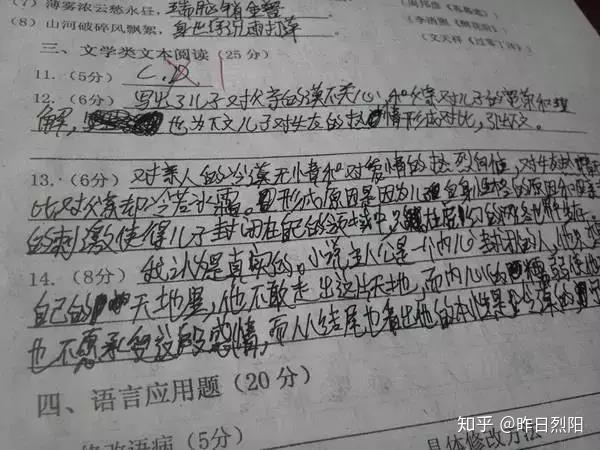 (7) 薄雾浓云愁永昼,瑞脑销金兽
(8) 山河破碎风飘絮,身世浮沉雨打萍
(周邦彦《苏幕遮》)
(李清照《醉花阴》)
(文天祥《过零丁洋》)
三、文学类文本阅读(25分)
11. (5分) C.D
12. (6分) 写出了儿子对父亲的漠不关心,和父亲对儿子的
解, 也为下文儿子对女友的热情形成对比,引出下文。
13. (6分) 对亲人的冷漠无情和对爱情的热烈 对女友
比对父亲却冷若冰霜。形成原因是因为儿子自身性格的原因和
的刺激使得儿子封闭在自己的 中,
14. (8分) 我认为是真实的。小说主人公是一个内心封闭的人,他
自己的天地里,他不敢走出这片天地,而内心的 使他
也不愿承受这段感情,而从结尾也看出他的本性是冷漠的
四、语言应用题(20分)
修改语病(5分)
具体修改方法
知乎 @昨日烈阳